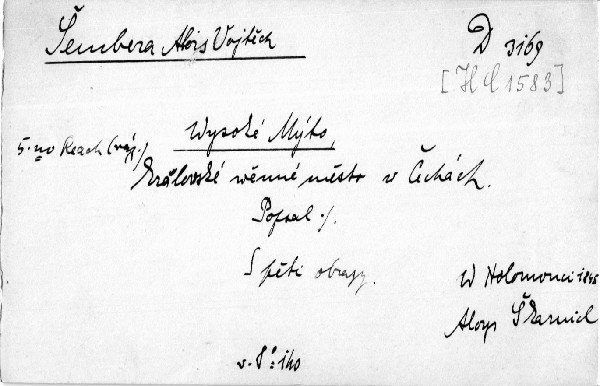 Šembera Alois Vojtěch
D 3169
[H C 1583]
Wysoké Mýto,
Králowské wěnné město w Čechách.
Popsal ./.
S pěti obrazy.
W Holomouci 1845
Aloys Škarnicl